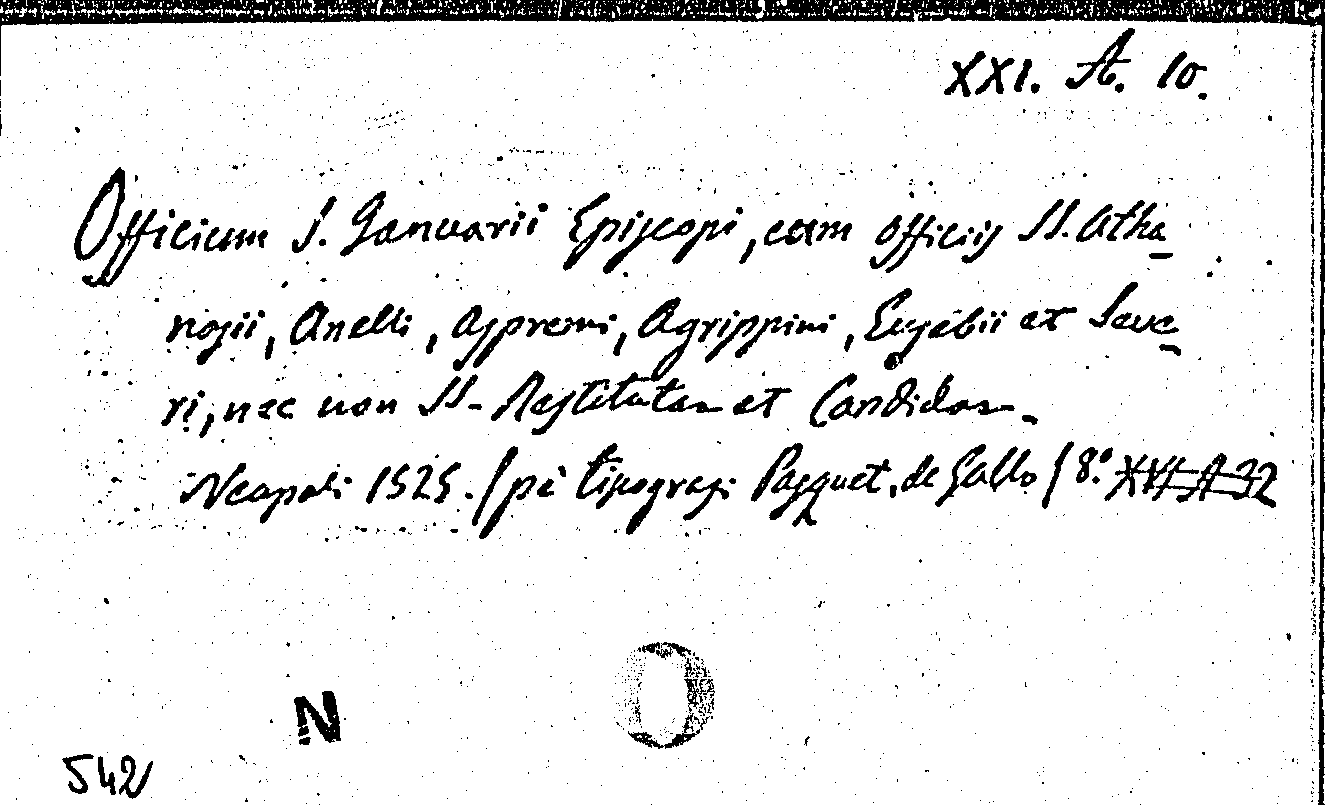 XXI. A. 10.
Officium S. Januarii Episcopi, cum officiis SS. Atha_
nasii, Anelli, Aspremi, Agrippini, Eusebii et Seve_
ri, nec non SS. Restitutae et Candidae.
Neapoli 1525. (pei tipografi Pasquet. de Gallo) 8.° XVI A 32
N
O
542